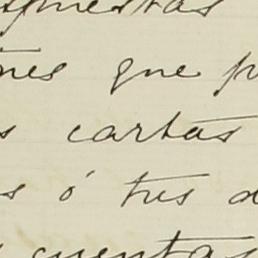 spuestas
nes que p
s cartas
s ó tres d
cuentas